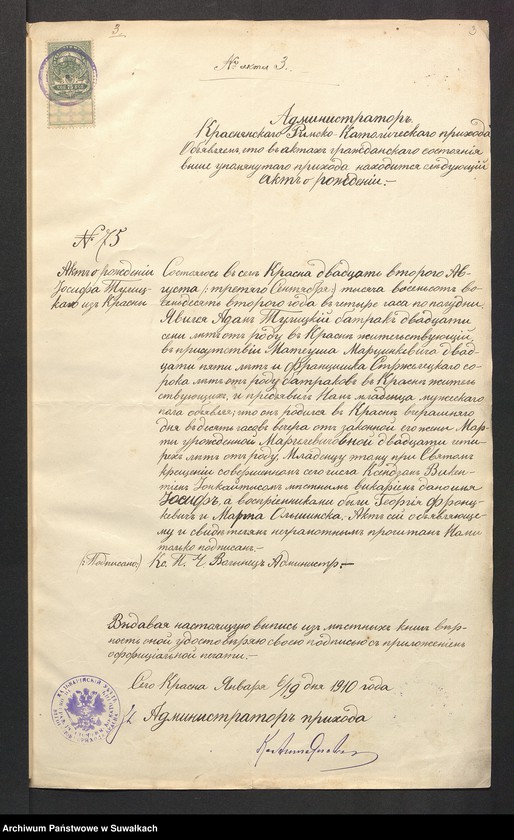 3
№ акта 3.
Администраторъ
Краснянскаго Римско-Католическаго прихода
Объявляетъ, что въ актахъ гражданскаго состоянія
выше упомянутаго прихода находится слѣдующій
актъ о рожденіи.-
№ 75
Актъ о рожденіи
Іосифа Тулиц-
каго изъ Красны
Состоялось въ селѣ Красна двадцать второго Ав-
густа /: третяго Сентября:/ тысяча восемьсотъ во-
семьдесятъ второго года въ четыре часа по полудни.
Явился Адамъ Тулицкій батракъ двадцати
семи лѣтъ отъ роду въ Краснѣ жительствующій,
въ присутствіи Матеуша Марцинкевича двад-
цати пяти лѣтъ и Францишка Стржелецкаго со-
рока лѣтъ отъ роду батраковъ въ Краснѣ житель-
ствующихъ, и предъявилъ Намъ младенца мужескаго
пола объявляя; что онъ родился въ Краснѣ вчерашняго
дня въ десять часовъ вечера отъ законной его жены Мар-
ты урожденной двадцати четы-
рехъ лѣтъ отъ роду. Младенцу этому при Святомъ
крещеніи совершенномъ сего числа Ксендзомъ Викен-
тіемъ мѣстнымъ викаріемъ дано имя
Іосифъ, а воспріемниками были Георгій Фронц-
кевичъ и Марта Ольшинска. Актъ сей объявляюще-
му и свидѣтелямъ неграмотнымъ прочитанъ Нами
только подписанъ.-
/:Подписано:/ Кс. П. Ч. Администр.-
Выдавая настоящую выпись изъ мѣстныхъ книгъ вѣр-
ность оной удостовѣряю своею подписью съ приложеніемъ
оффиціальной печати.-
Село Красна Января 6/19 дня 1910 года
Администраторъ прихода
Archiwum Państwowe w Suwałkach